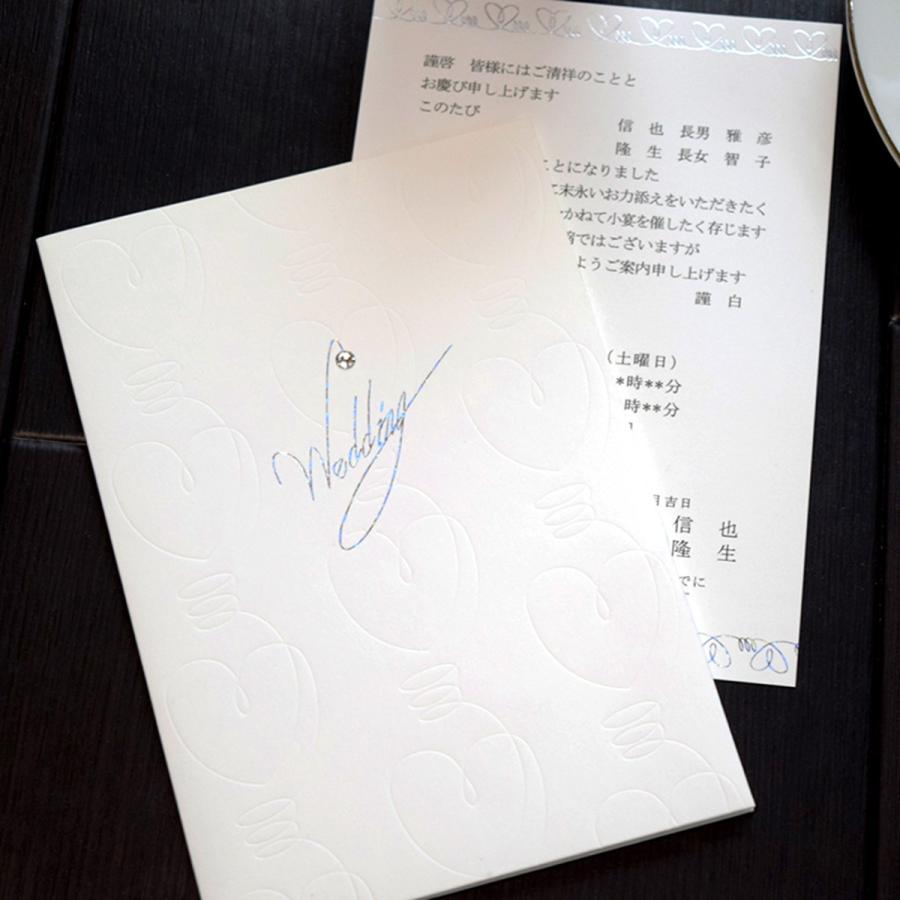 謹啓　皆様にはご清祥のことと
お慶び申し上げます
このたび
信　也　長男　雅　彦
隆　生　長女　智　子
ことになりました
に末永いお力添えをいただきたく
かねて小宴を催したく存じます
ではございますが
ようご案内申し上げます
謹　白
(土曜日)
*時**分
時**分
月吉日
信　也
隆　生
でに
Wedding